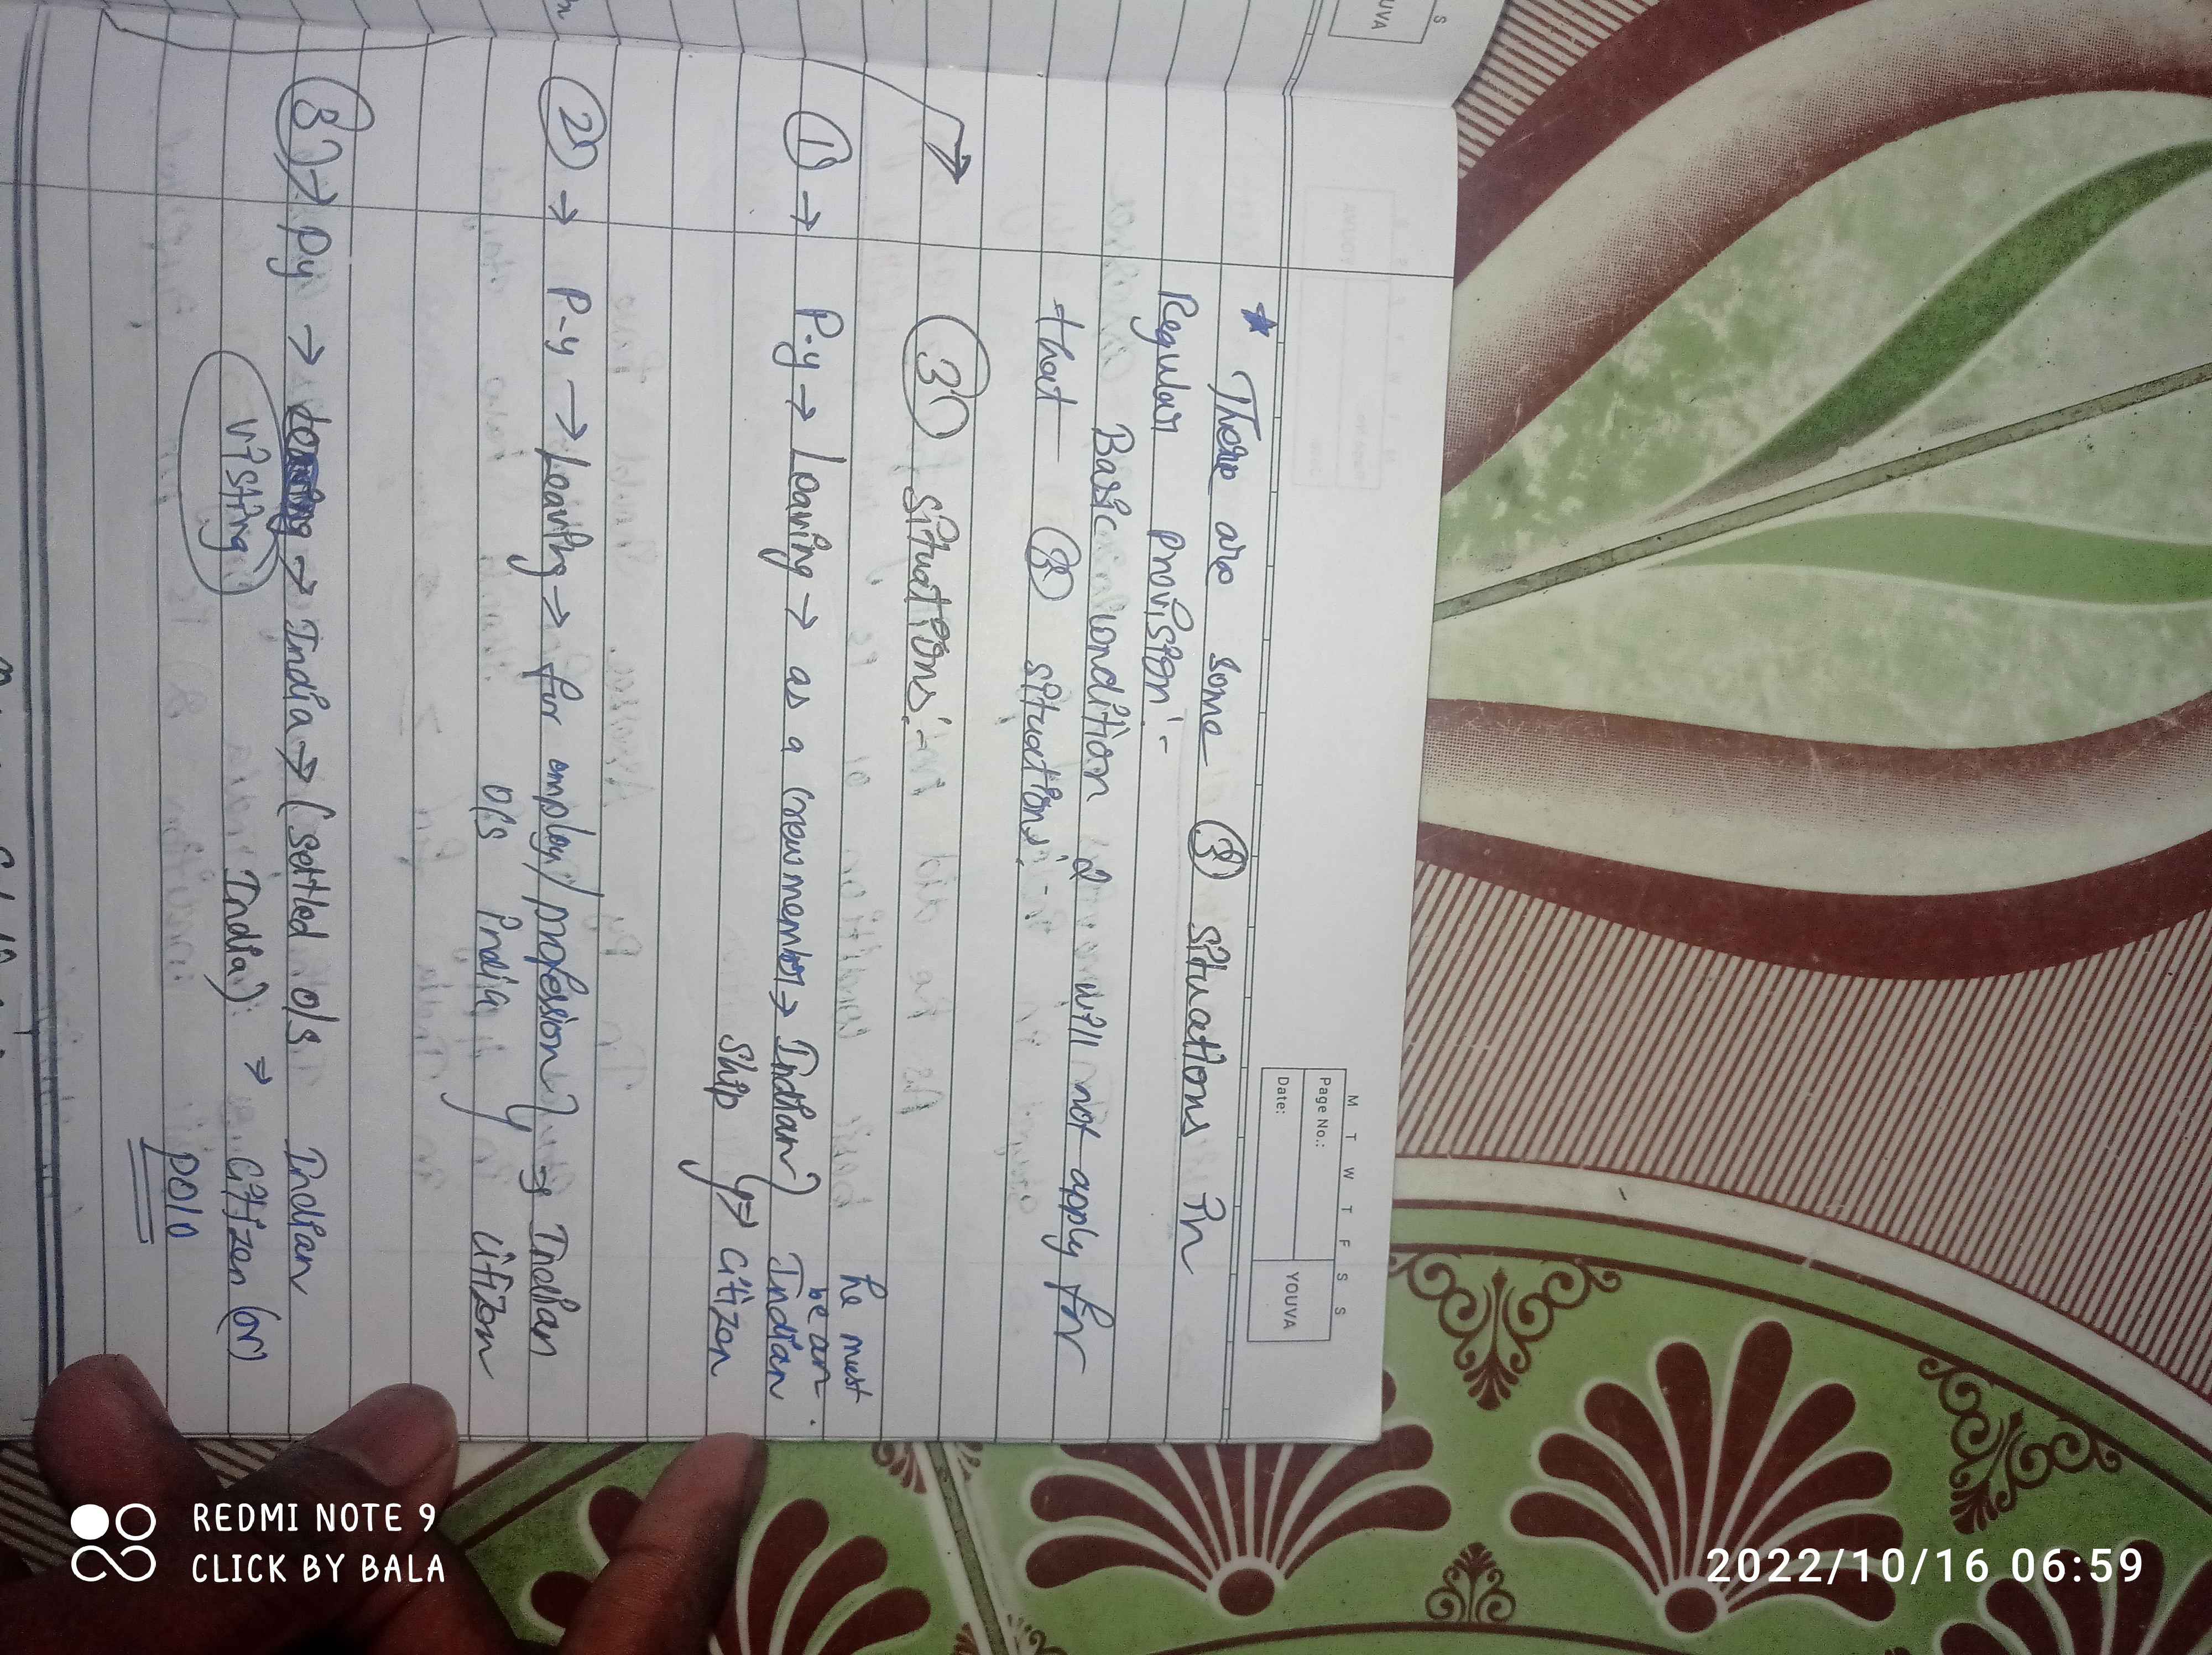 S
UVA
M T W T F S S
Page No.:
Date:
YOUVA
* There are some (3) situations in
Regular provision:-
Basic condition 2 will not apply for
that (3) situations.
(3) situations:-
he must
be an
(1) → P-y → Leaving → as a crew member → Indian } Indian
ship } ⇒ citizen
(2) → P-y → Leaving → for employ/profession } ⇒ Indian
o/s india } citizen
(3) → Py → → India → (settled o/s Indian
visiting India) ⇒ citizen (or)
POIO
REDMI NOTE 9
CLICK BY BALA
2022/10/16 06:59